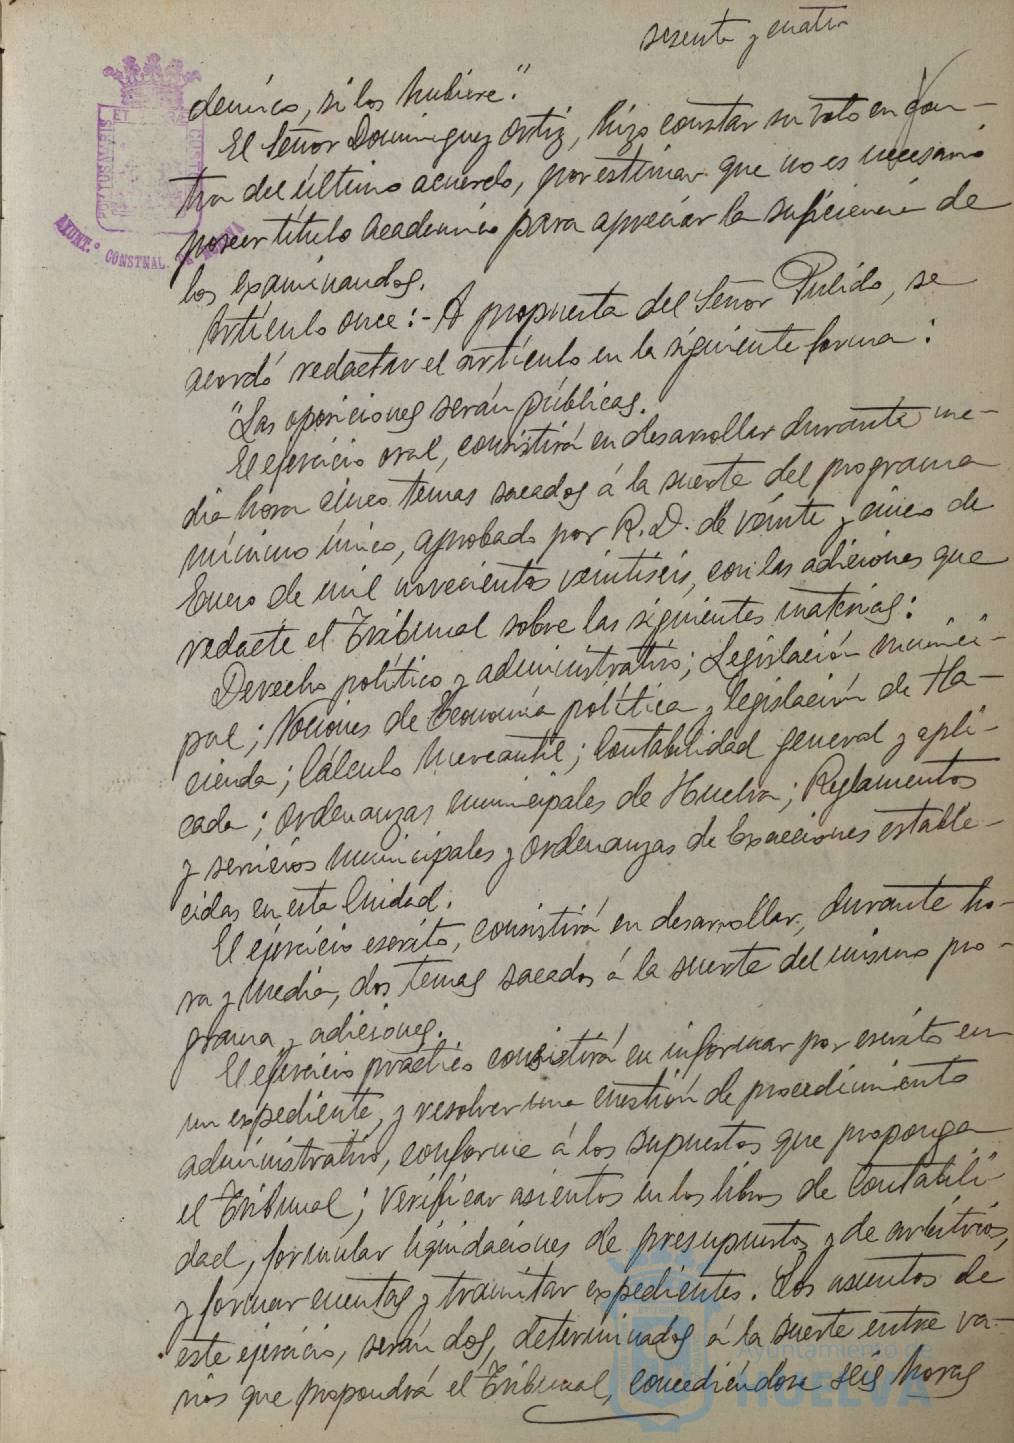 sesenta y cuatro
démico, si los hubiere."
El Señor Dominguez Ortiz, hizo constar su voto en con-
tra del último acuerdo, por estimar que no es necesario
poseer título Académico para apreciar la suficiencia de
los examinandos.
Artículo once:- A propuesta del Señor Pulido, se
acordó redactar el artículo en la siguiente forma:
"Las oposiciones serán públicas.
El ejercicio oral, consistirá en desarrollar durante me-
dia hora cinco temas sacados á la suerte del programa
mínimo único, aprobado por R. D. de veinte y cinco de
Enero de mil novecientos veintiseis, con las adiciones que
redacte el Tribunal sobre las siguientes materias:
Derecho político y administrativo; Legislación munici-
pal; Nociones de Economía política y legislación de Ha-
cienda; Cálculo Mercantil; Contabilidad general y apli-
cada; Ordenanzas municipales de Huelva; Reglamentos
y servicios municipales y Ordenanzas de Exacciones estable-
cidas en esta Ciudad.
El ejercicio escrito, consistirá en desarrollar, durante ho-
ra y media, dos temas sacados á la suerte del mismo pro-
grama y adiciones.
El ejercicio práctico consistirá en informar por escrito en
un expediente, y resolver una cuestión de procedimiento
administrativo, conforme á los supuestos que proponga
el Tribunal; verificar asientos en los libros de Contabili-
dad, formular liquidaciones de presupuestos y de arbitrios,
y formar cuentas y tramitar expedientes. Los asuntos de
este ejercicio, serán dos, determinados á la suerte entre va-
rios que propondrá el Tribunal, concediéndose seis horas
AYUNT.º CONSTNAL.
Ayuntamiento de
HUELVA